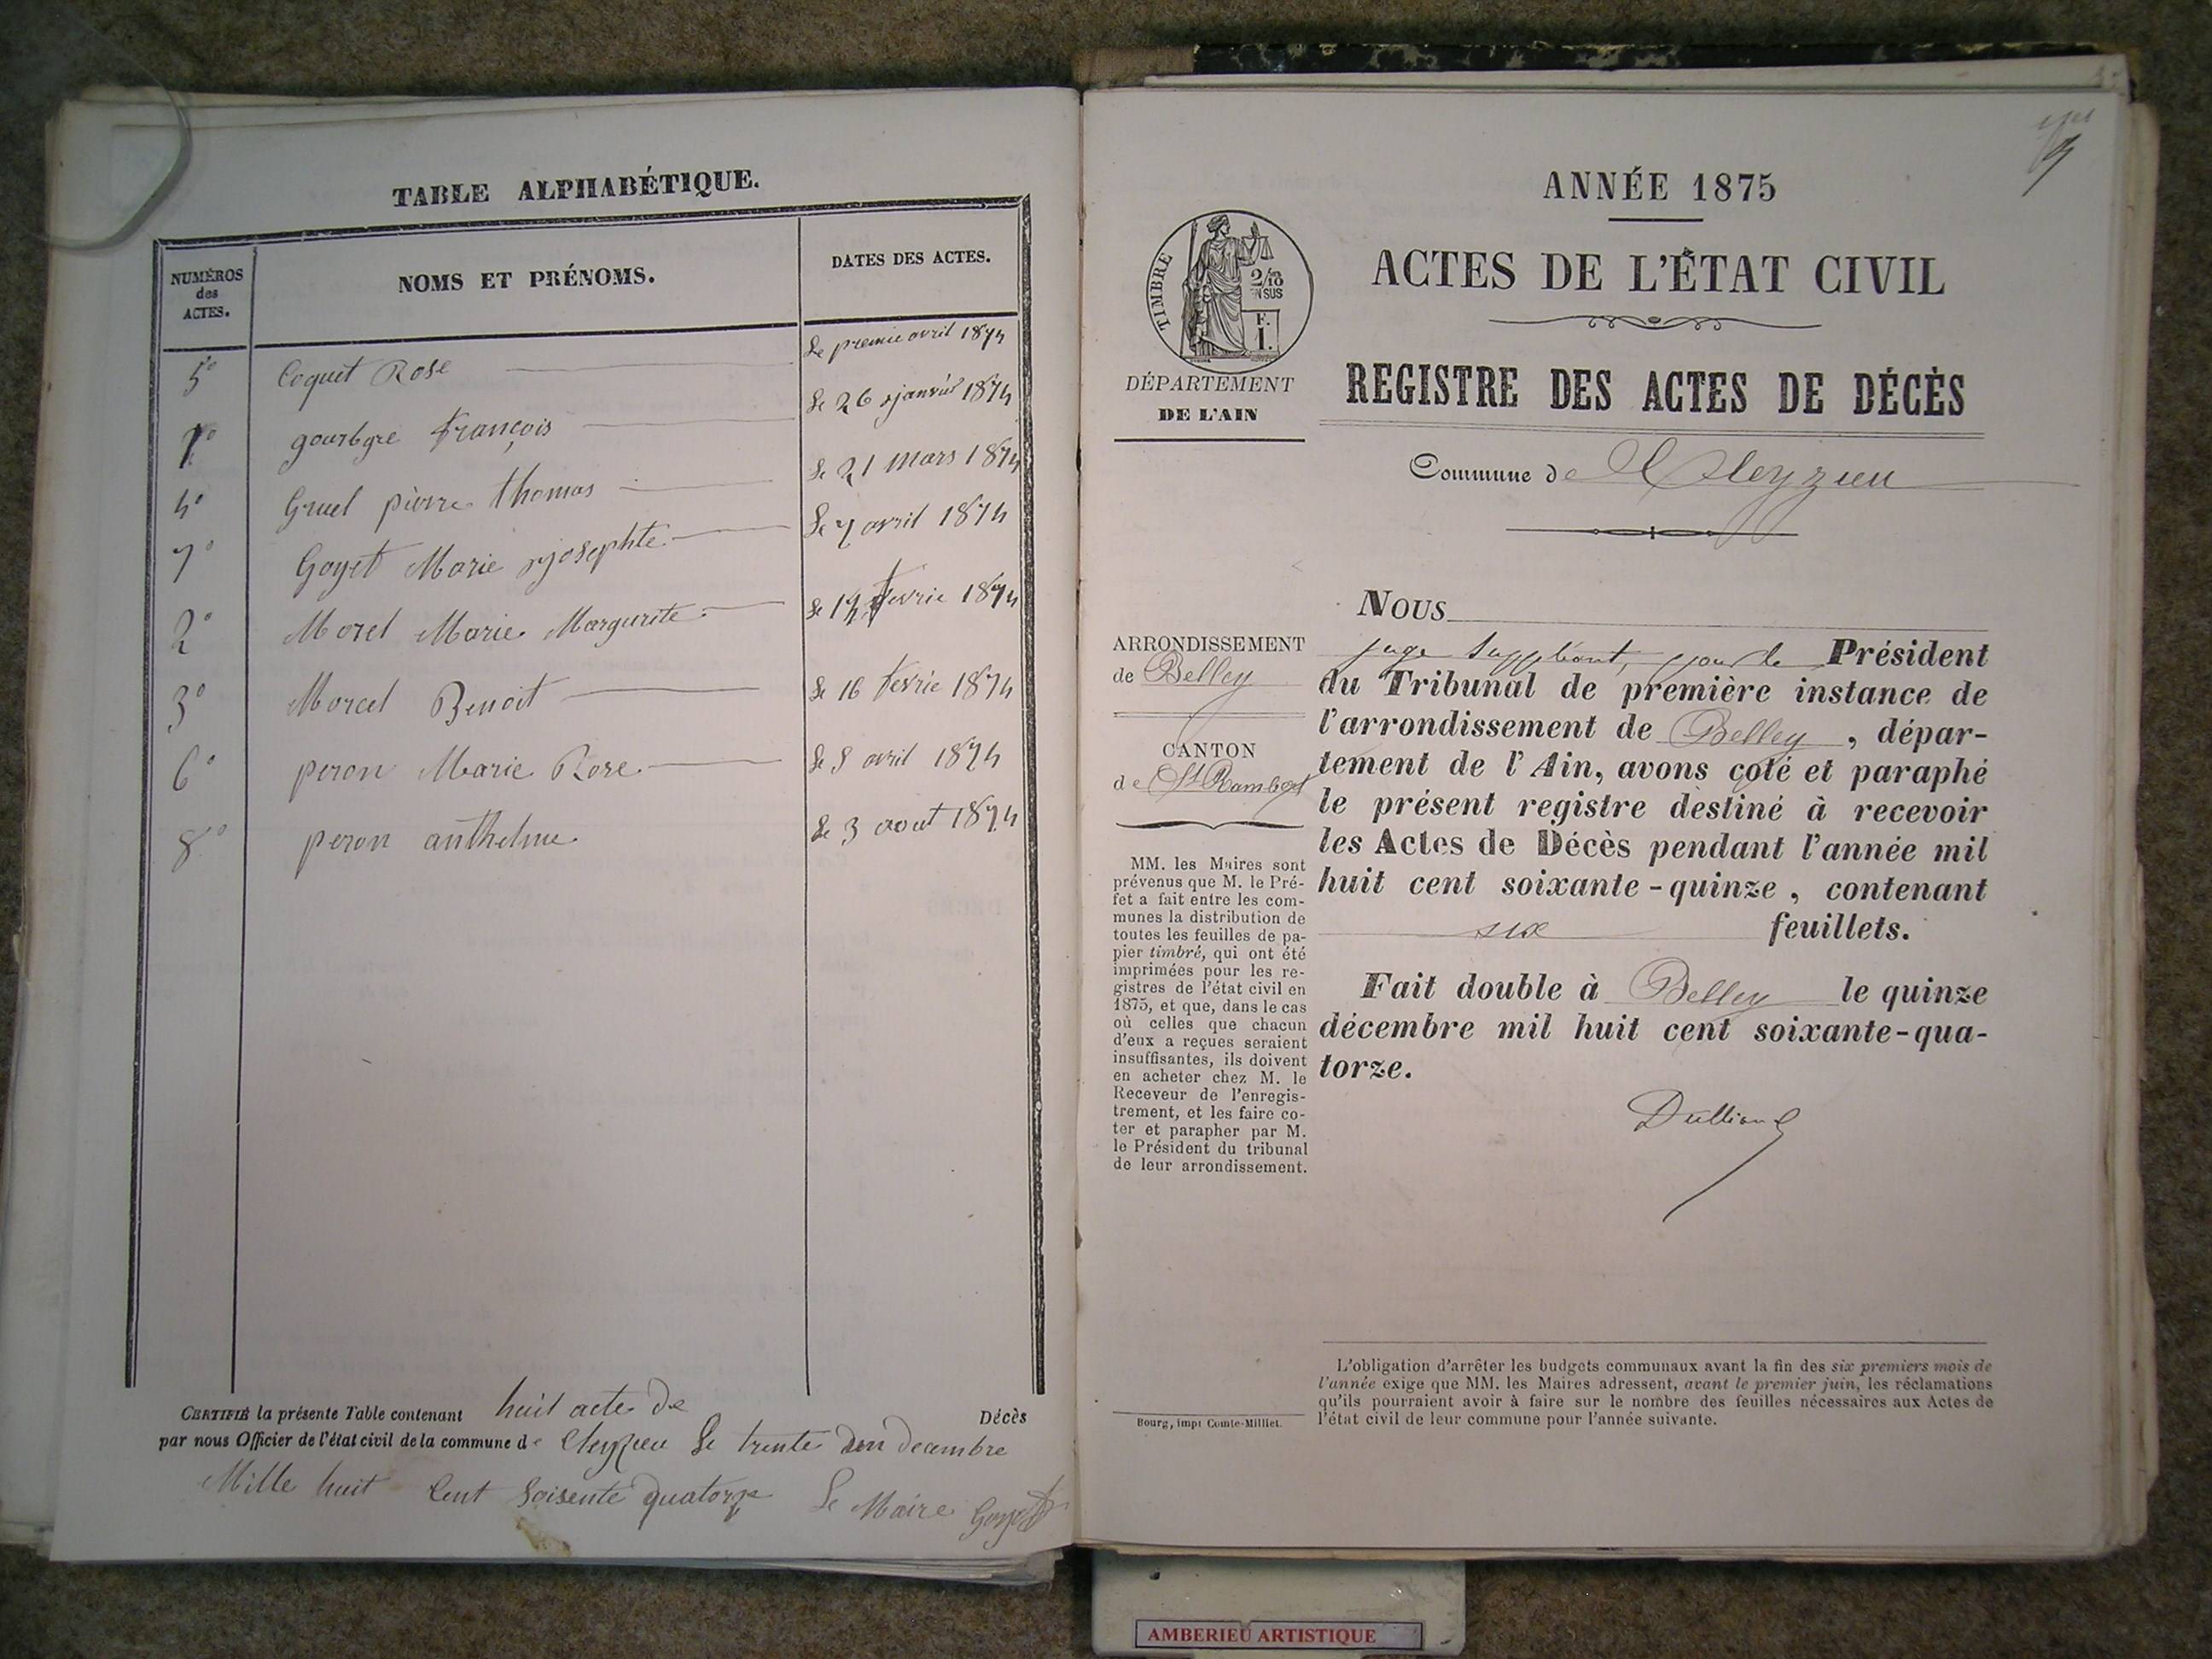 TABLE ALPHABÉTIQUE.
NUMÉROS
des
ACTES.
NOMS ET PRÉNOMS.
DATES DES ACTES.
5° Coquet Rose Le premie avril 1874
1° gourbyre François Le 26 janvié 1874
4° Gruel pièrre thomas Le 21 Mars 1874
7° Goyet Marie josephte Le 7 avril 1874
2° Morel Marie Margurite Le 14 fevrie 1874
3° Morcel Benoit Le 16 fevrie 1874
6° peron Marie Rose Le 5 avril 1874
8° peron anthelme Le 3 aout 1874
CERTIFIÉ la présente Table contenant huit acte de Décès
par nous Officier de l'état civil de la commune de Cleyzieu Le trente un decembre
Mille huit Cent Soisente quatorze Le Maire Goyet
9
ANNÉE 1875
ACTES DE L'ÉTAT CIVIL
REGISTRE DES ACTES DE DÉCÈS
Commune de Cleyzieu
TIMBRE
2/10
EN SUS
F.
1.
DÉPARTEMENT
DE L'AIN
ARRONDISSEMENT
de Belley
CANTON
de St Rambert
MM. les Maires sont
prévenus que M. le Pré-
fet a fait entre les com-
munes la distribution de
toutes les feuilles de pa-
pier timbré, qui ont été
imprimées pour les re-
gistres de l'état civil en
1875, et que, dans le cas
où celles que chacun
d'eux a reçues seraient
insuffisantes, ils doivent
en acheter chez M. le
Receveur de l'enregis-
trement, et les faire co-
ter et parapher par M.
le Président du tribunal
de leur arrondissement.
Bourg, impr Comte-Milliet.
NOUS
juge Suppléant, pour le Président
du Tribunal de première instance de
l'arrondissement de Belley, dépar-
tement de l'Ain, avons coté et paraphé
le présent registre destiné à recevoir
les Actes de Décès pendant l'année mil
huit cent soixante-quinze, contenant
six feuillets.
Fait double à Belley le quinze
décembre mil huit cent soixante-qua-
torze.
L'obligation d'arrêter les budgets communaux avant la fin des six premiers mois de
l'année exige que MM. les Maires adressent, avant le premier juin, les réclamations
qu'ils pourraient avoir à faire sur le nombre des feuilles nécessaires aux Actes de
l'état civil de leur commune pour l'année suivante.
AMBERIEU ARTISTIQUE